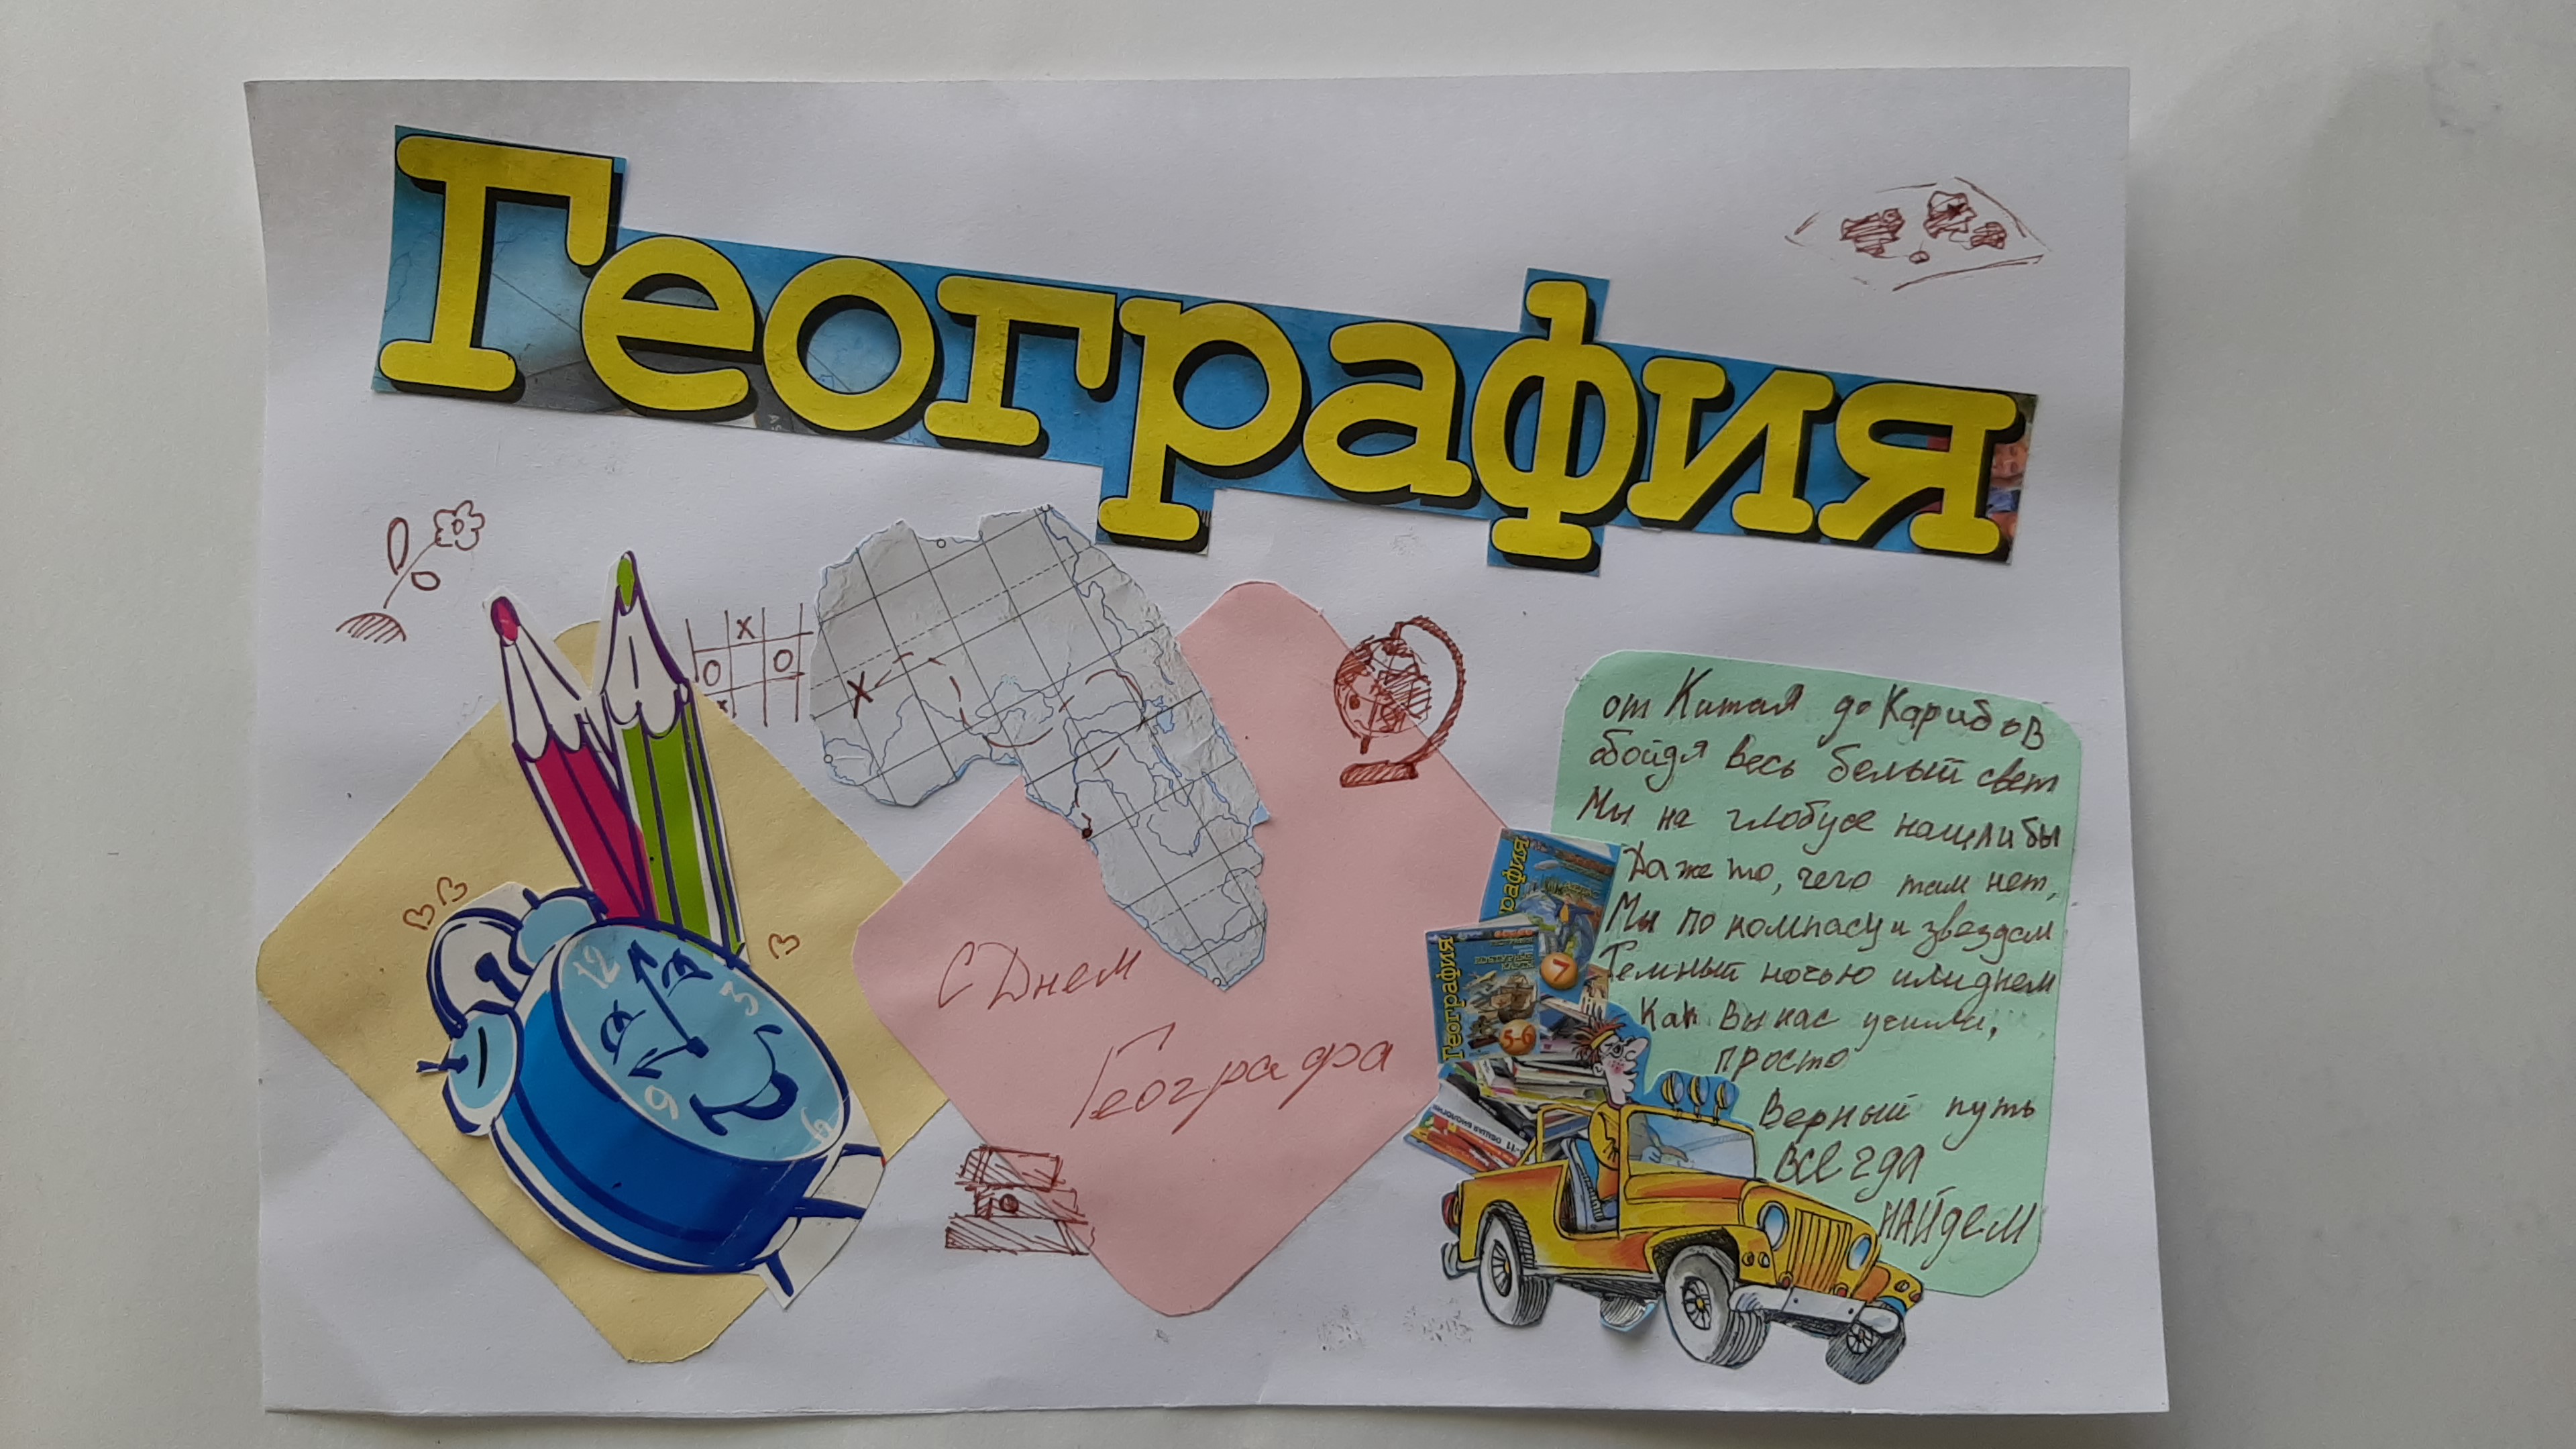 География
X
O O
X
от Китая до Карибов
обойдя весь белый свет
Мы на глобусе нашли бы
Даже то, чего там нет,
Мы по компасу и звездам
Темный ночью или днем
Как Вы нас учили,
просто
Верный путь
ВСЕГДА
НАЙДЕМ
С Днем
Географа
География
7
География
5-6
12
3
6
9